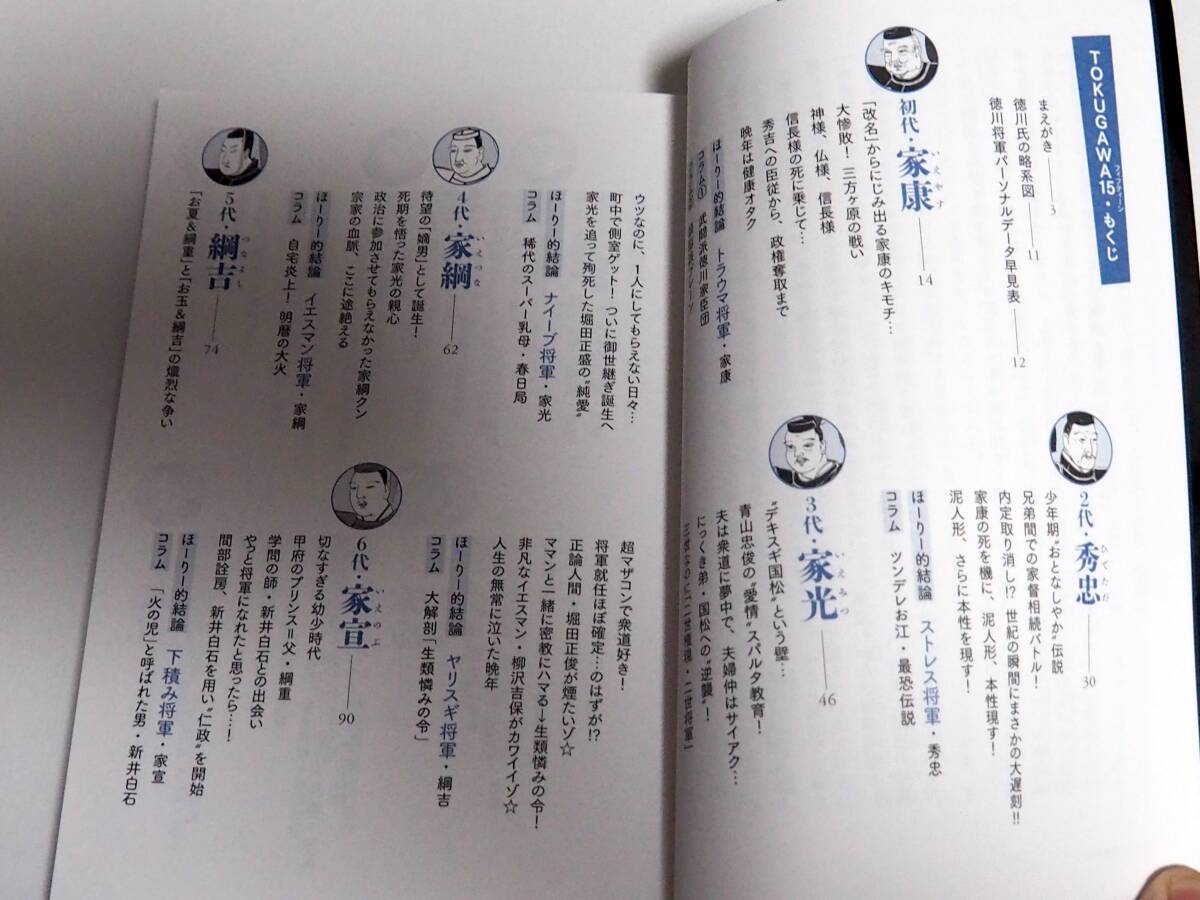 TOKUGAWA15・もくじ
フィフティーン
まえがき 3
徳川氏の略系図 11
徳川将軍パーソナルデータ早見表 12
初代・家康 14
いえやす
「改名」からにじみ出る家康のキモチ…
大惨敗！三方ヶ原の戦い
神様、仏様、信長様
信長様の死に乗じて…
秀吉への臣従から、政権奪取まで
晩年は健康オタク
ほーりー的結論 トラウマ将軍・家康
コラム① 武闘派徳川家臣団
2代・秀忠 30
ひでただ
少年期“おとなしやか”伝説
兄弟間での家督相続バトル！
内定取り消し!? 世紀の瞬間にまさかの大遅刻!!
家康の死を機に、泥人形、本性現す！
泥人形、さらに本性を現す！
ほーりー的結論 ストレス将軍・秀忠
コラム ツンデレお江・最恐伝説
3代・家光 46
いえみつ
“デキスギ国松”という壁…
青山忠俊の“愛情”スパルタ教育！
夫は衆道に夢中で、夫婦仲はサイアク…
にっくき弟・国松への“逆襲”！
三世なのに「二世権現・二世将軍」
ウツなのに、1人にしてもらえない日々…
町中で側室ゲット！ついに御世継ぎ誕生へ
家光を追って殉死した堀田正盛の“純愛”
ほーりー的結論 ナイーブ将軍・家光
コラム 稀代のスーパー乳母・春日局
4代・家綱 62
いえつな
待望の「嫡男」として誕生！
死期を悟った家光の親心
政治に参加させてもらえなかった家綱クン
宗家の血脈、ここに途絶える
ほーりー的結論 イエスマン将軍・家綱
コラム 自宅炎上！明暦の大火
5代・綱吉 74
つなよし
「お夏＆綱重」と「お玉＆綱吉」の熾烈な争い
超マザコンで衆道好き！
将軍就任ほぼ確定…のはずが!?
正論人間・堀田正俊が煙たいゾ☆
ママンと一緒に密教にハマる→生類憐みの令！
非凡なイエスマン・柳沢吉保がカワイイゾ☆
人生の無常に泣いた晩年
ほーりー的結論 ヤリスギ将軍・綱吉
コラム 大解剖「生類憐みの令」
6代・家宣 90
いえのぶ
切なすぎる幼少時代
甲府のプリンス＝父・綱重
学問の師・新井白石との出会い
やっと将軍になれたと思ったら…！
間部詮房、新井白石を用い“仁政”を開始
ほーりー的結論 下積み将軍・家宣
コラム 「火の児」と呼ばれた男・新井白石